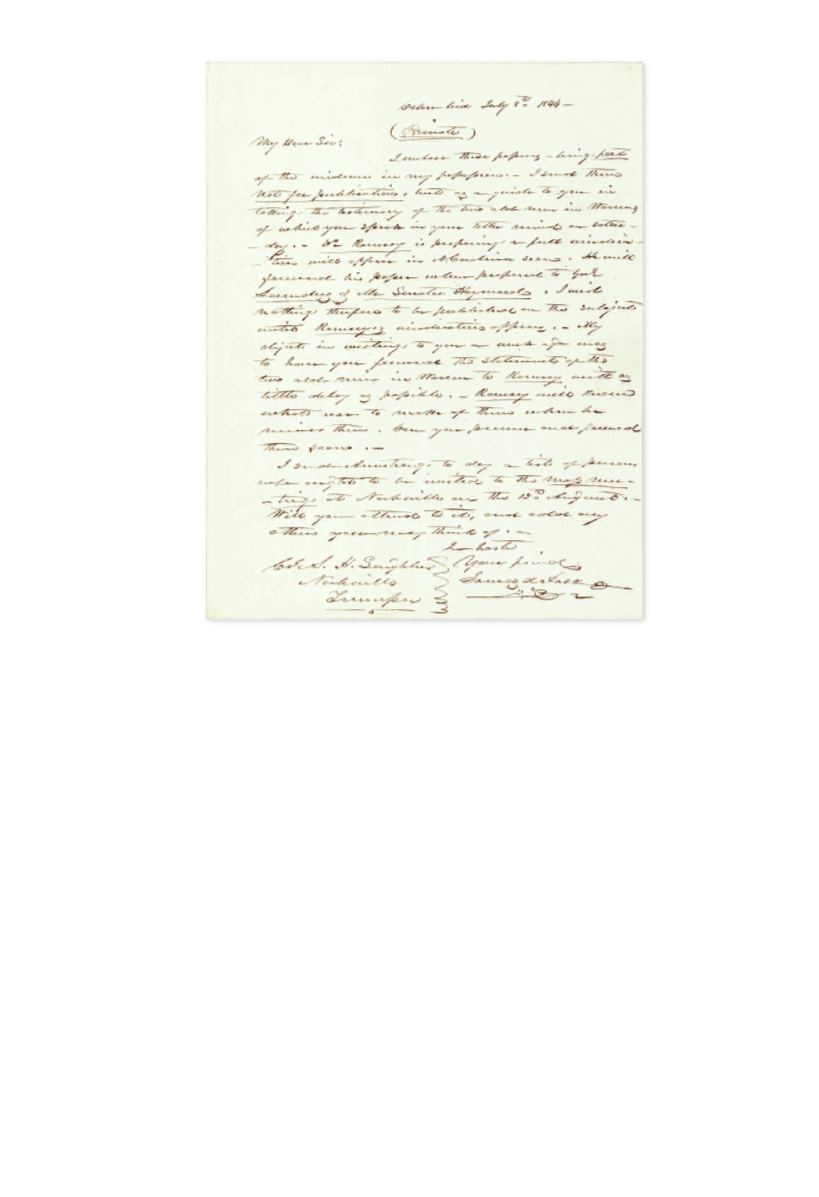 Columbia July 8th 1844 —
(Private)
My Dear Sir:
I enclose three papers – being part
of the evidence in my possession. – I send them
not for publication, but as a guide to you in
the testimony of the two old men in Warren,
of which you speak in your letter received on
– day. – Dr. Ramsey is preparing a full vindica-
- tion will appear in soon. He will
forward his paper when prepared to Gov.
Saunders & Mr. Senator Haywood. I wish
nothing further to be published on the subject
until Ramsey's vindication appears. – My
object in writing to you a week ago was
to have you forward the statements of the
two old men in Warren to Ramsey with as
little delay as possible. – Ramsey will know
what use to make of them when he
receives them. Can you procure and forward
them soon. –
I send Armstrong to day a list of persons
who ought to be invited to the mass mee-
- ting at Nashville on the 15th August. –
Will you attend to it, and add any
others you may think of. –
In haste
Your friend
James K. Polk
Col. S. H. Laughlin
Nashville
Tennessee